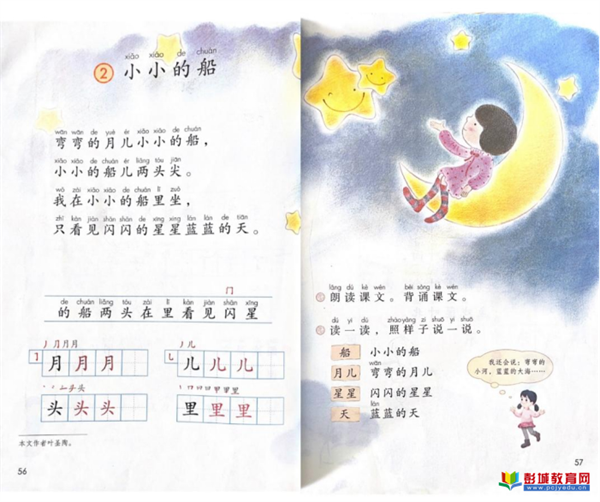 xiǎo xiǎo de chuán
2 小小的船
wān wān de yuè ér xiǎo xiǎo de chuán
弯弯的月儿小小的船，
xiǎo xiǎo de chuán ér liǎng tóu jiān
小小的船儿两头尖。
wǒ zài xiǎo xiǎo de chuán lǐ zuò
我在小小的船里坐，
zhǐ kàn jiàn shǎn shǎn de xīng xing lán lán de tiān
只看见闪闪的星星蓝蓝的天。
门
de chuán liǎng tóu zài lǐ kàn jiàn shǎn xīng
的船两头在里看见闪星
月月月
儿儿儿
头头头
里里里
本文作者叶圣陶。
56
lǎng dú kè wén bèi sòng kè wén
朗读课文。背诵课文。
dú yi dú zhào yàng zi shuō yi shuō
读一读，照样子说一说。
船 小小的船
wān
月儿 弯弯的月儿
星星 闪闪的星星
lán
天 蓝蓝的天
我还会说：弯弯的
小河，蓝蓝的大海……
57
彭城教育网
www.pcjyedu.cn